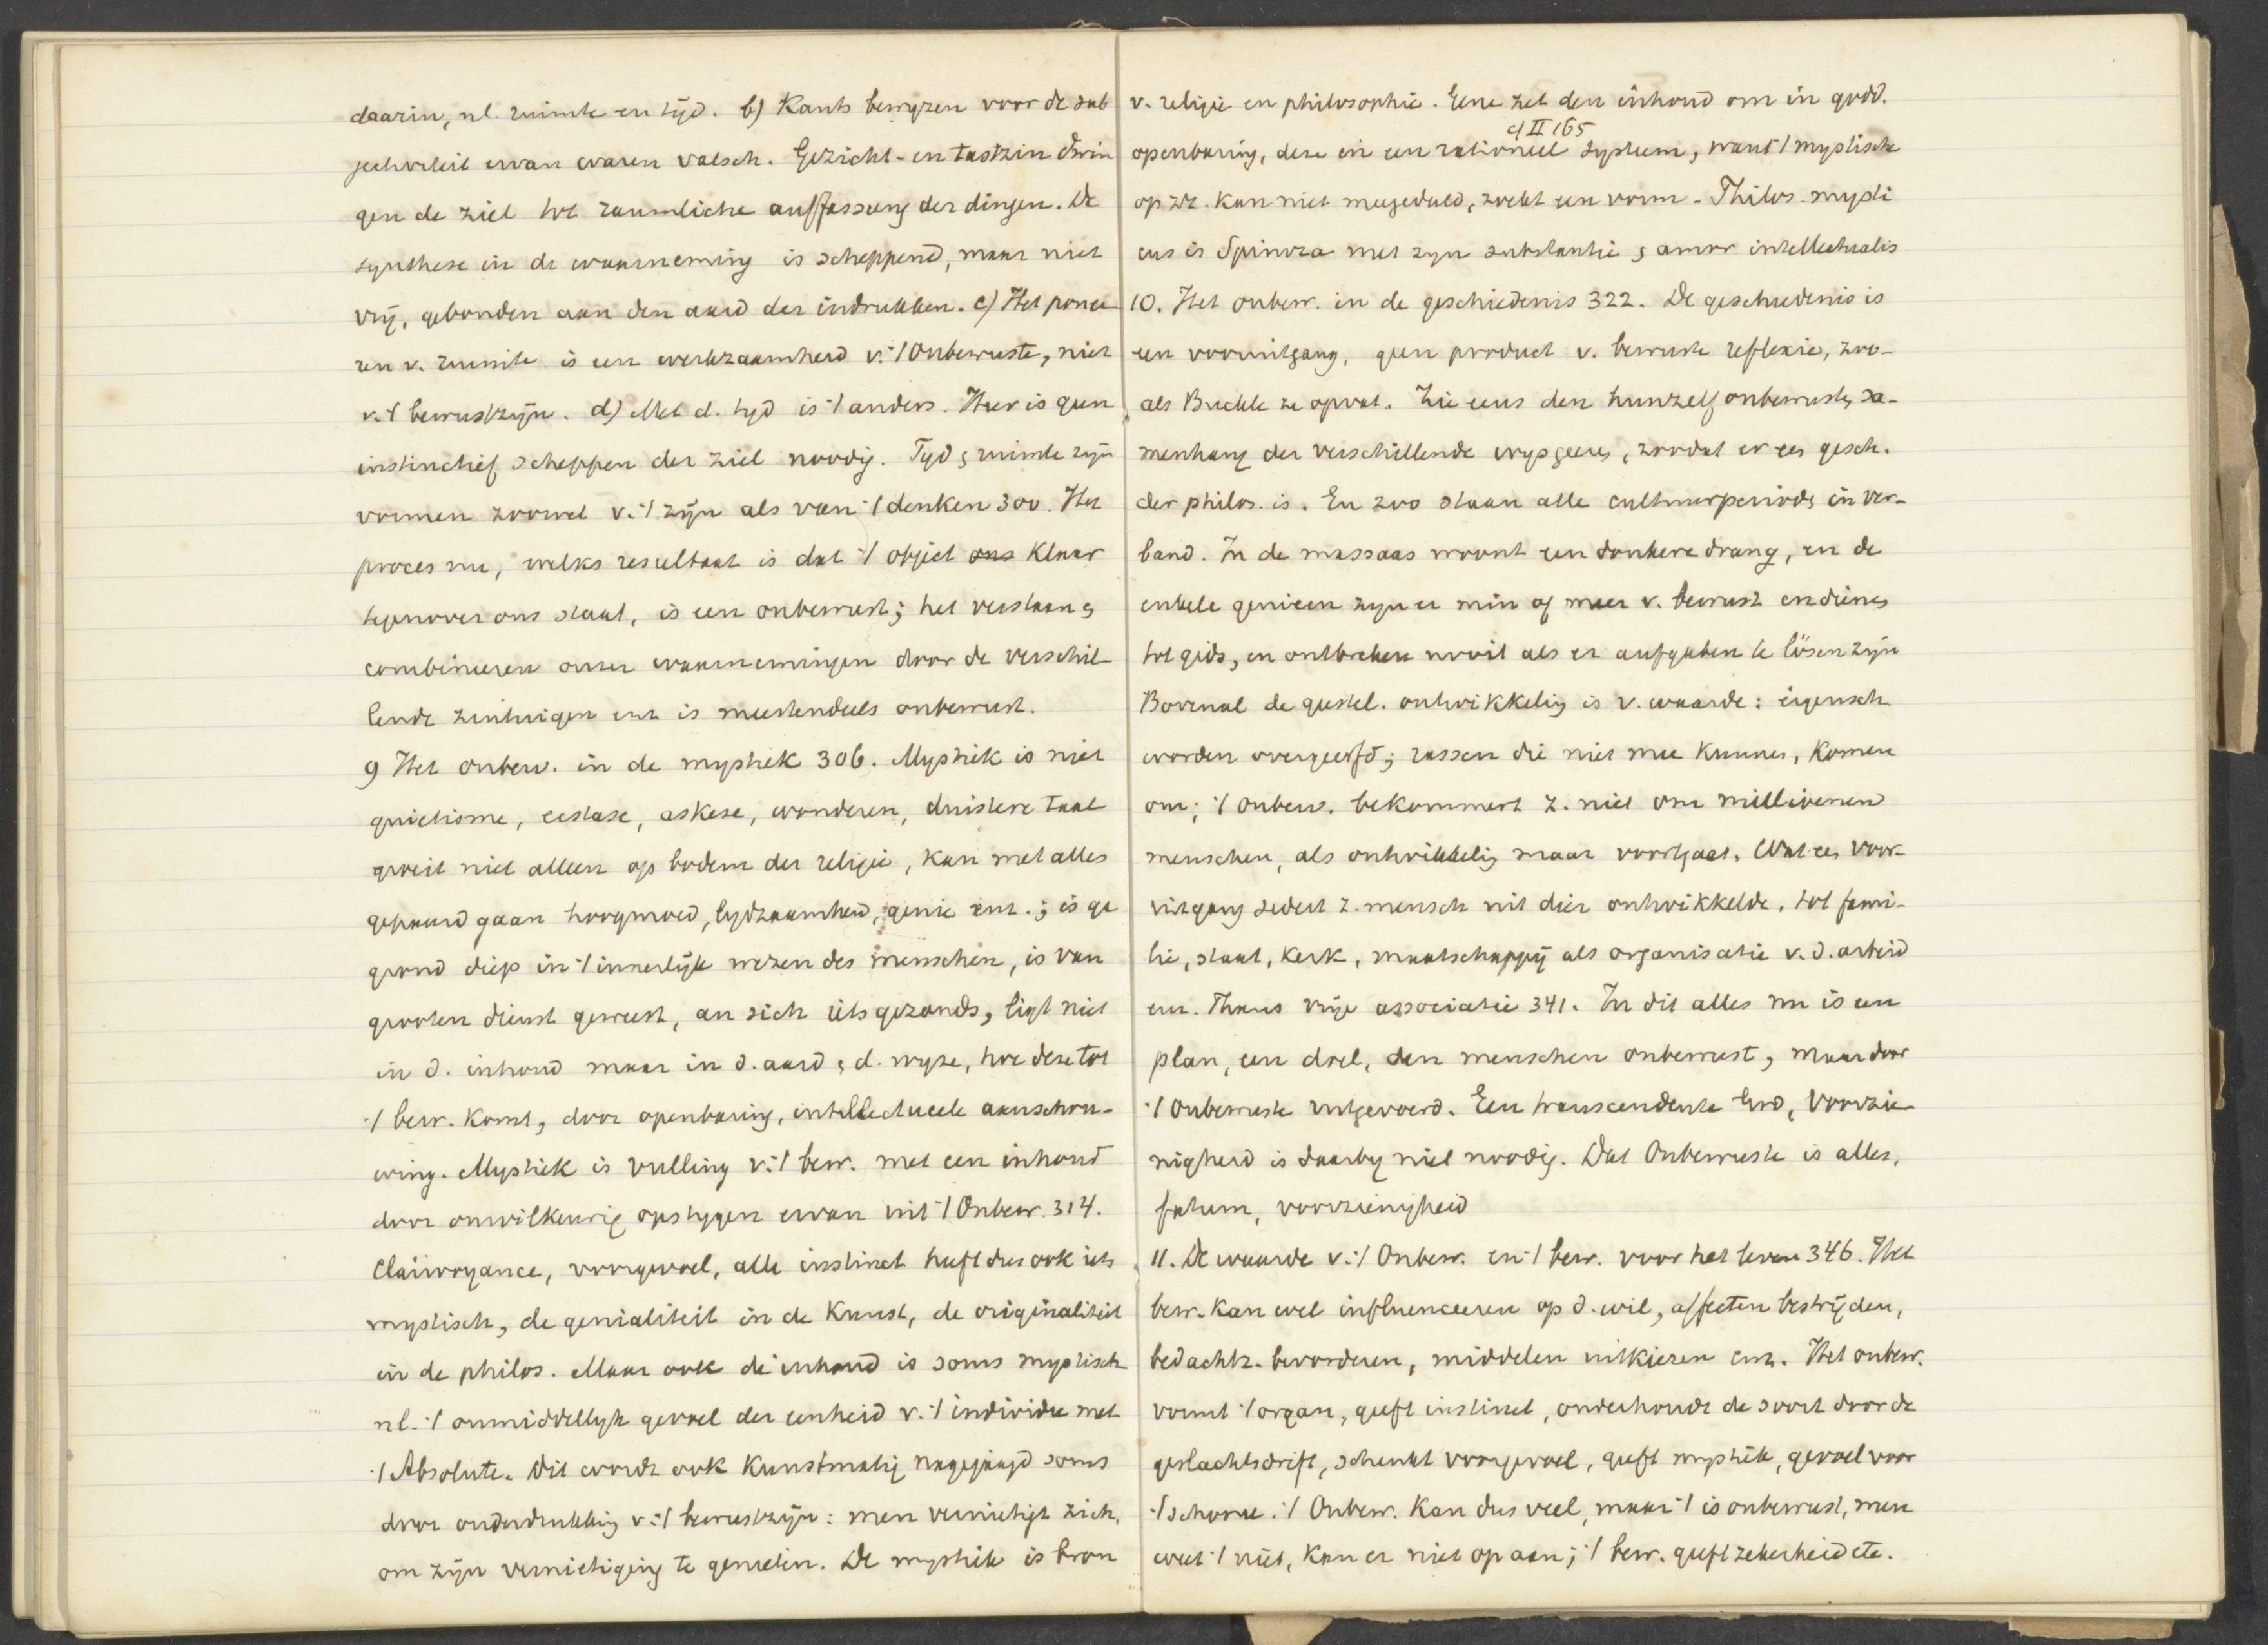 daarin, nl. ruimte en tijd. b) Kants bewyzen voor de sub
jectiviteit ervan waren valsch. Gezicht- en tastzin dwin
gen de ziel tot raumliche auffassung der dingen. De
synthese in de waarneming is scheppend, maar niet
vrij, gebonden aan den aard der indrukken. c) Het ponee
ren v. ruimte is een werkzaamheid v. 't Onbewuste, niet
v. 't bewustzijn. d) Met d. tyd is 't anders. Hier is geen
instinctief scheppen der ziel noodig. Tyd & ruimte zyn
vormen zoowel v. 't zijn als van 't denken 300. Het
proces nu, welks resultaat is dat 't object ons klaar
tegenover ons staat, is een onbewust; het verstaan &
combineeren onzer waarnemingen door de verschil
lende zintuigen enz is meestendeels onbewust.
9 Het onbew. in de mystiek 306. Mystiek is niet
quietisme, ecstase, askese, wonderen, duistere taal
groeit niet alleen op bodem der religie, kan met alles
gepaard gaan hoogmoed, lydzaamheid, genie enz.; is ge
grond diep in 't innerlijk wezen des menschen, is van
grooten dienst geweest, an sich iets gezonds, ligt niet
in d. inhoud maar in d. aard & d. wyze, hoe deze tot
't bew. komt, door openbaring, intellectueele aanschou-
wing. Mystiek is vulling v. 't bew. met een inhoud
door onwillkeurig opstygen ervan uit 't Onbew. 314.
Clairvoyance, voorgevoel, alle instinct heeft dus ook iets
mystisch, de genialiteit in de kunst, de originaliteit
in de philos. Maar ook de inhoud is soms mystisch
nl. 't onmiddellyk gevoel der eenheid v. 't individu met
't Absolute. Dit wordt ook kunstmatig nagejaagd soms
door onderdrukking v. 't bewustzijn: men vernietigt zich,
om zijn vernietiging te genieten. De mystiek is bron
v. religie en philosophie. Gene zet den inhoud om in godd.
cf II 165
openbaring, deze in een rationeel systeem, want 't mystische
op zz. kan niet meegedeeld, zoekt een vorm. Philos. mysti
cus is Spinoza met zyn substantie & amor intellectualis
10. Het onbew. in de geschiedenis 322. De geschiedenis is
een vooruitgang, geen product v. bewuste reflexie, zoo-
als Buckle ze opvat. Zie eens den hunzelf onbewusten sa-
menhang der verschillende wysgeeren, zoodat er een gesch.
der philos. is. En zoo staan alle cultuurperioden in ver-
band. In de massaas woont een donkere drang, en de
enkele genieen zyn er min of meer v. bewust en dienen
tot gids, en ontbreken nooit als er aufgaben te lösen zijn
Bovenal de geestel. ontwikkeling is v. waarde: eigensch
worden overgeerfd; rassen die niet mee kunnen, komen
om; 't onbew. bekommert z. niet om millioenen
menschen, als ontwikkeling maar voortgaat. Wat een voor-
uitgang sedert z. mensch uit dier ontwikkelde, tot fami-
lie, staat, kerk, maatschappij als organisatie v. d. arbeid
enz. Thans vrije associatie 341. In dit alles nu is een
plan, een doel, den menschen onbewust, maar door
't Onbewuste uitgevoerd. Een transcendente God, Voorzie
nigheid is daarby niet noodig. Dat Onbewuste is alles,
fatum, voorzienigheid
11. De waarde v. 't Onbew. en 't bew. voor het leven 346. Het
bew. kan wel influenceeren op d. wil, affecten bestrijden,
bedachtz. bevorderen, middelen uitkiezen enz. Het onbew.
vormt 't organ, geeft instinct, onderhoudt de soort door de
geslachtsdrift, schenkt voorgevoel, geeft mystiek, gevoel voor
't schoone. 't Onbew. kan dus veel, maar 't is onbewust, men
weet 't niet, kan er niet op aan; 't bew. geeft zekerheid etc.